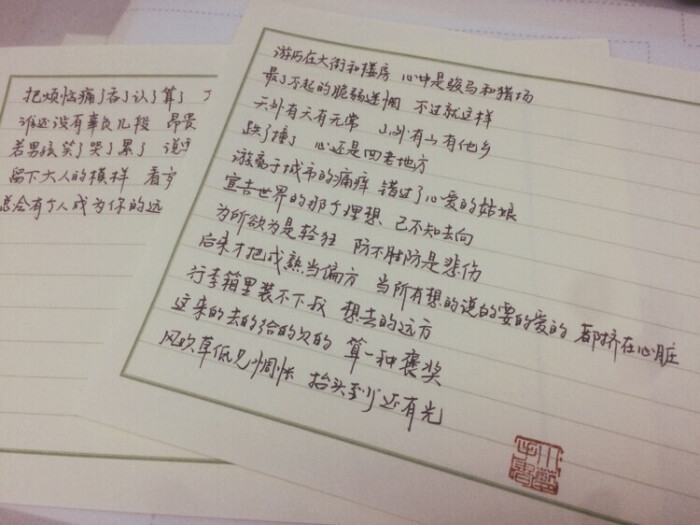 把烦恼痛了吞了认了算了
谁还没有辜负几段 昂贵
若男孩笑了哭了累了 说
留下大人的模样 看
总会有个人成为你的远
游历在大街和楼房 心中是骏马和猎场
最了不起的脆弱迷惘 不过就这样
天外有天有无常 山外有山有他乡
跌了撞了 心还是回老地方
游离于城市的痛痒 错过了心爱的姑娘
宣告世界的那个理想 已不知去向
为所欲为是轻狂 防不胜防是悲伤
后来才把成熟当偏方 当所有想的说的要的爱的 都挤在心脏
行李箱里装不下我 想去的远方
这来的去的给的欠的 算一种褒奖
风吹草低见惆怅 抬头至少还有光